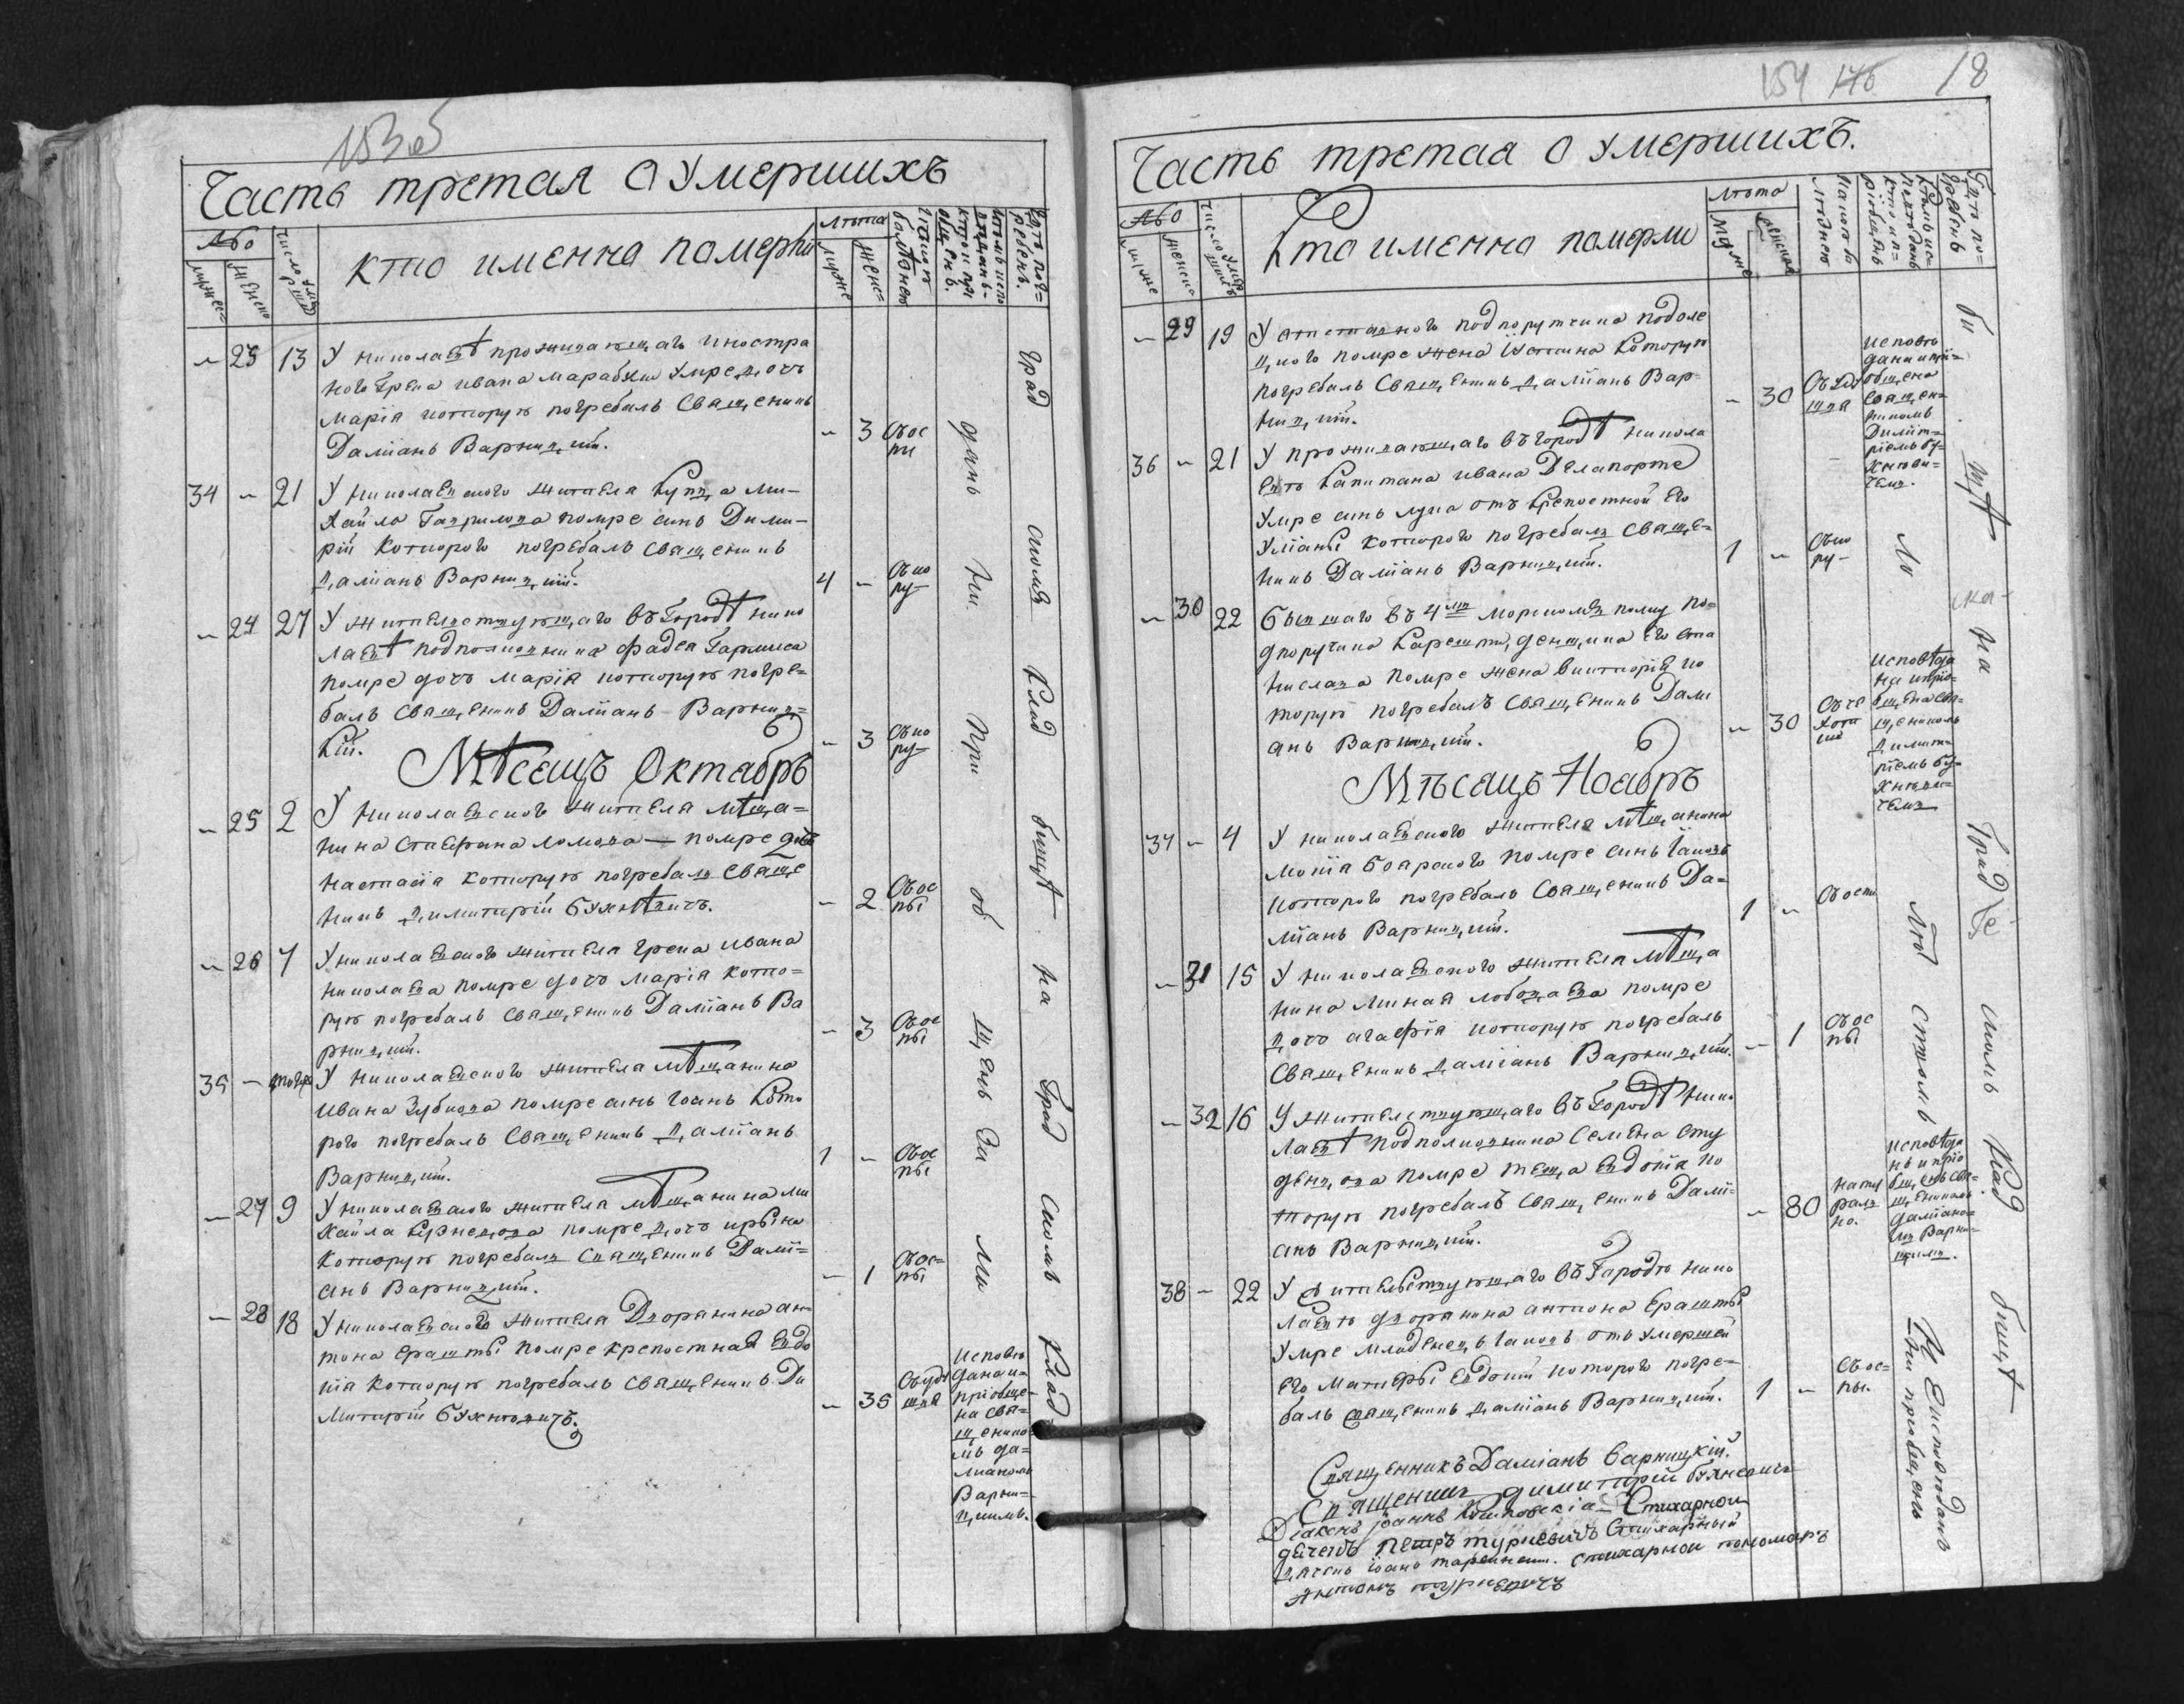 153об
Часть третая О Умершихъ
№о
муже=
женско
число умер
кто именна померли
лѣта
муже
жене=
— 23 13 У николаевѣ проживающаго иностра
ного грека ивана марабуш умре дочъ
марія которую погребалъ Священикъ
Даміанъ Варницкій. — 3 Отъ ос
пи
34 — 21 У Николаевского жителя купца ми-
хайла Гаврилова помре синъ Дими-
рій которого погребалъ священикъ
Даміанъ Варницкій. 4 — Отъ ко
ру-
— 24 27 У жительствующаго въ Городѣ нико
лаевѣ подполковника фадея Гармиса
помре дочъ марія которую погре=
балъ священикъ Даміанъ Варниц=
кій. — 3 Отъ ко
ру-
Мѣсацъ Октабръ
— 25 2 У николаевского жителя мѣща=
нина стаефана ломова — помре дочъ
настасія которую погребалъ Свяще
никъ димитирій Бухнѣвичъ. — 2 Отъ ос
пы
— 26 7 У николаевского жителя грека ивана
николаева помре дочъ марія кото=
рую погребалъ священикъ Даміанъ Ва
рницкій. — 3 Отъ ос
пы
35 — тогожъ У николаевского жителя мѣщанина
ивана Зубкова помре синъ Iоанъ кото
рого погребалъ священикъ Даміанъ
Варницкій. 1 — Отъ ос
пы
— 27 9 У николаевского жителя мѣщанина ми
хайла помре дочъ ирына
которую погребалъ священикъ Дамі=
анъ Варницкій. — 1 Отъ ос=
пы
— 28 18 У николаевского жителя Дворанина ан
тона ерашты помре крепостная евдо
кія которую погребалъ священикъ Ди
митирій Бухнѣвичъ. — 35
исповѣ
дана и=
пріобще=
на свя=
щенико
мъ да=
міаномъ
Варни=
цкимъ.
дань ни при об щень За ми
град ском клад бищѣ на град скомъ клад
154 146 18
Часть третая О Умершихъ.
№о
муже
женско
Число умерш
кто именна померли
лѣта
муже
женска
— 29 19 У отставного подпорутчика подоле
цкого помре жена которую
погребалъ Священикъ Даміанъ Вар=
ницкій. — 30
исповѣ
дана и прі=
общена
священ=
никомъ
Димит=
ріемъ бу=
хнѣви=
чемъ.
36 — 21 У проживающаго въ городѣ никола
евѣ капитана ивана Делапорте
умре синъ лука отъ крепостной его
уліаны которого погребалъ Священ=
никъ Даміанъ Варницкій. 1 — Отъ ко
ру-
— 30 22 Бывшаго въ 4мъ морскомъ полку по=
дпоручика денщика его ста
нислава помре жена виктория ко
торую погребалъ священикъ Дами
анъ Варницкій. — 30
исповѣда
на и пріо=
бщена свя=
щеникомъ
димит=
ріемъ бу=
хнѣви=
чемъ
Мѣсацъ Ноабръ
37 — 4 У николаевского жителя мѣщанина
мокія Боярского помре синъ Iаковъ
которого погребалъ священикъ Да=
міанъ Варницкій. 1 — Отъ оспи
— 31 15 У николаевского жителя мѣща
нина миная лободаева помре
дочъ агафія которую погребалъ
священикъ даміанъ Варницкій. — 1 Отъ ос
пы
— 32 16 У жительствующаго въ Городѣ нико
лаевѣ подполковника Семена сту
денцова помре теща евдокія ко
торую погребалъ священикъ Дамі=
анъ Варницкій. — 80 нату
рал
но.
исповѣда
нъ и пріо
бщенъ свя=
щеникомъ
даміано=
мъ Варни=
цкимъ.
38 — 22 У жительствующаго въ Городѣ нико
лаевѣ дворанина антона ерашты
умре младенецъ Iаковъ отъ умершей
его матери евдокіи которого погре=
балъ священикъ даміанъ Варницкій. 1 — Отъ ос=
пы.
Не исповѣданъ
Ни приобщенъ
би щѣ на Град скомъ клад бищѣ
Священникъ Даміанъ Варницкій.
Священникъ димитирій бухневичъ
Діаконъ Іоаннъ Стихарной
дячекъ Петръ туркевичъ Стихарный
дячекъ іоанъ стихарной пономаръ
Антонъ туркевичъ